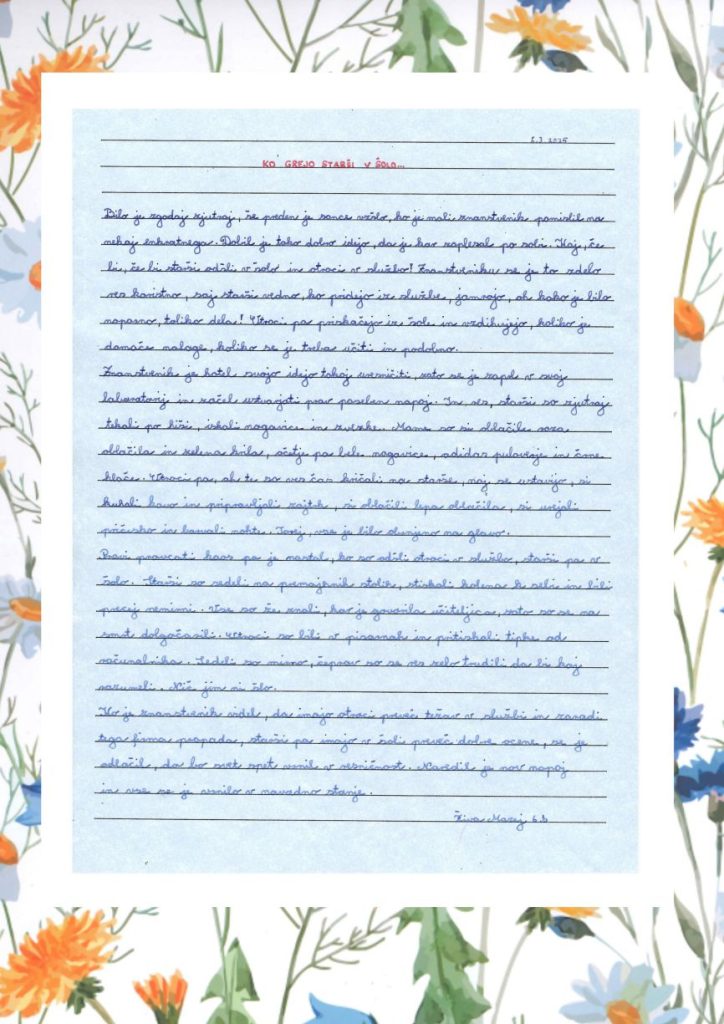 KO GREJO STARŠI V ŠOLO...
Bilo je zgodaj zjutraj, še preden je sonce vzšlo, ko je mali znanstvenik pomislil na
nekaj enkratnega. Dobil je tako dobro idejo, da je kar zaplesal po sobi. Kaj, če
bi, če bi starši odšli v šolo in otroci v službo! Znanstveniku se je to zdelo
res koristno, saj starši vedno, ko pridejo iz službe, jamrajo, oh kako je bilo
naporno, toliko dela! Otroci pa priskačejo iz šole in vzdihujejo, koliko je
domače naloge, koliko se je treba učiti in podobno.
Znanstvenik je hotel svojo idejo takoj uresničiti, zato se je zaprl v svoj
laboratorij in začel ustvarjati prav poseben napoj. In res, starši so zjutraj
tekali po hiši, iskali nogavice in zvezke. Mame so si oblačile roza
oblačila in zelena krila, očetje pa bele nogavice, adidas puloverje in črne
hlače. Otroci pa, oh ti so ves čas kričali na starše, naj se ustavijo, si
kuhali kavo in pripravljali zajtrk, si oblačili lepa oblačila, si urejali
pričesko in barvali nohte. Torej, vse je bilo obrnjeno na glavo.
Pravi pravcati kaos pa je nastal, ko so odšli otroci v službo, starši pa v
šolo. Starši so sedeli na premajhnih stolih, stiskali kolena k sebi in bili
precej nemirni. Vse so že znali, kar je govorila učiteljica, zato so se na
smrt dolgočasili. Otroci so bili v pisarnah in pritiskali tipke od
računalnika. Sedeli so mirno, čeprav so se res zelo trudili da bi kaj
razumeli. Nič jim ni šlo.
Ko je znanstvenik videl, da imajo otroci preveč težav v službi in zaradi
tega firma propada, starši pa imajo v šoli preveč dobre ocene, se je
odločil, da bo svet spet vrnil v resničnost. Naredil je nov napoj
in vse se je vrnilo v navadno stanje.
Živa Mazej 6.b